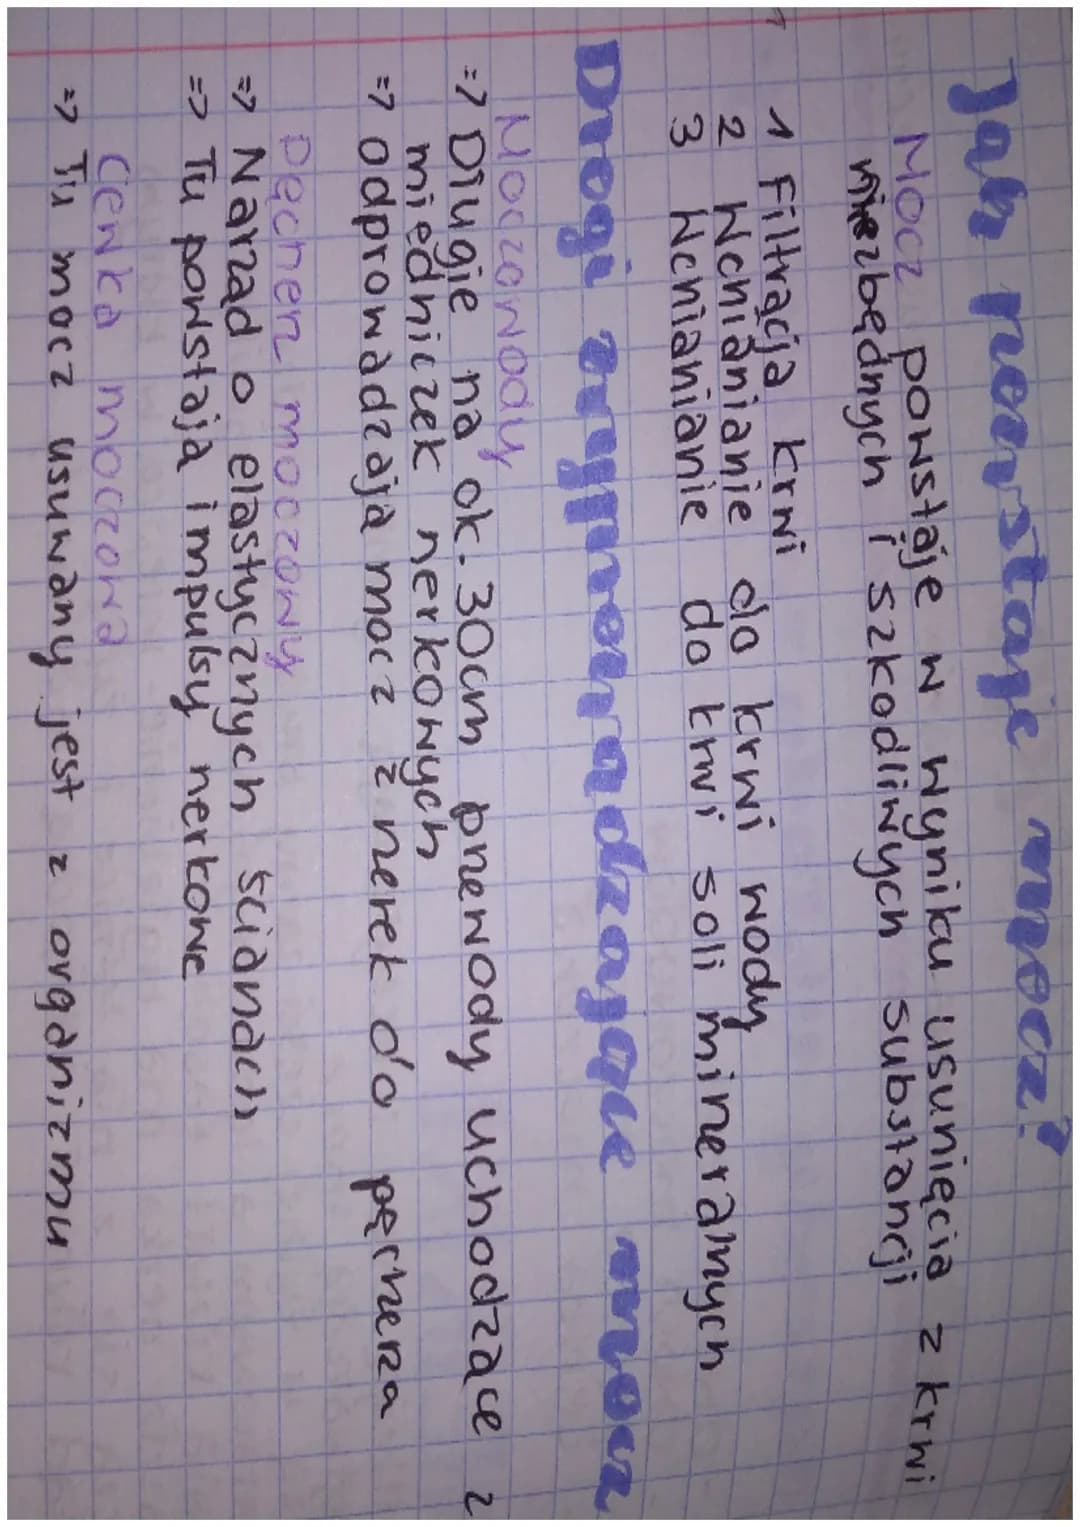 Jak powstaje mocz?
Mocz powstaje w wyniku usunięcia z krwi
niezbędnych i szkodliwych substancji
1 Filtracja krwi
2 Wchłanianie do krwi wody
3 Wchłanianie do krwi soli mineralnych
Drogi wyprowadzające mocz
Moczowody
=> Długie na ok. 30cm przewody uchodzące z
miedniczek nerkowych
=> odprowadzają mocz z nerek do pęcherza
Pęcherz moczowy
=> Narząd o elastycznych ścianach
=> Tu powstają impulsy nerkowe
Cewka moczowa
=> Tu mocz usuwany jest z organizmu